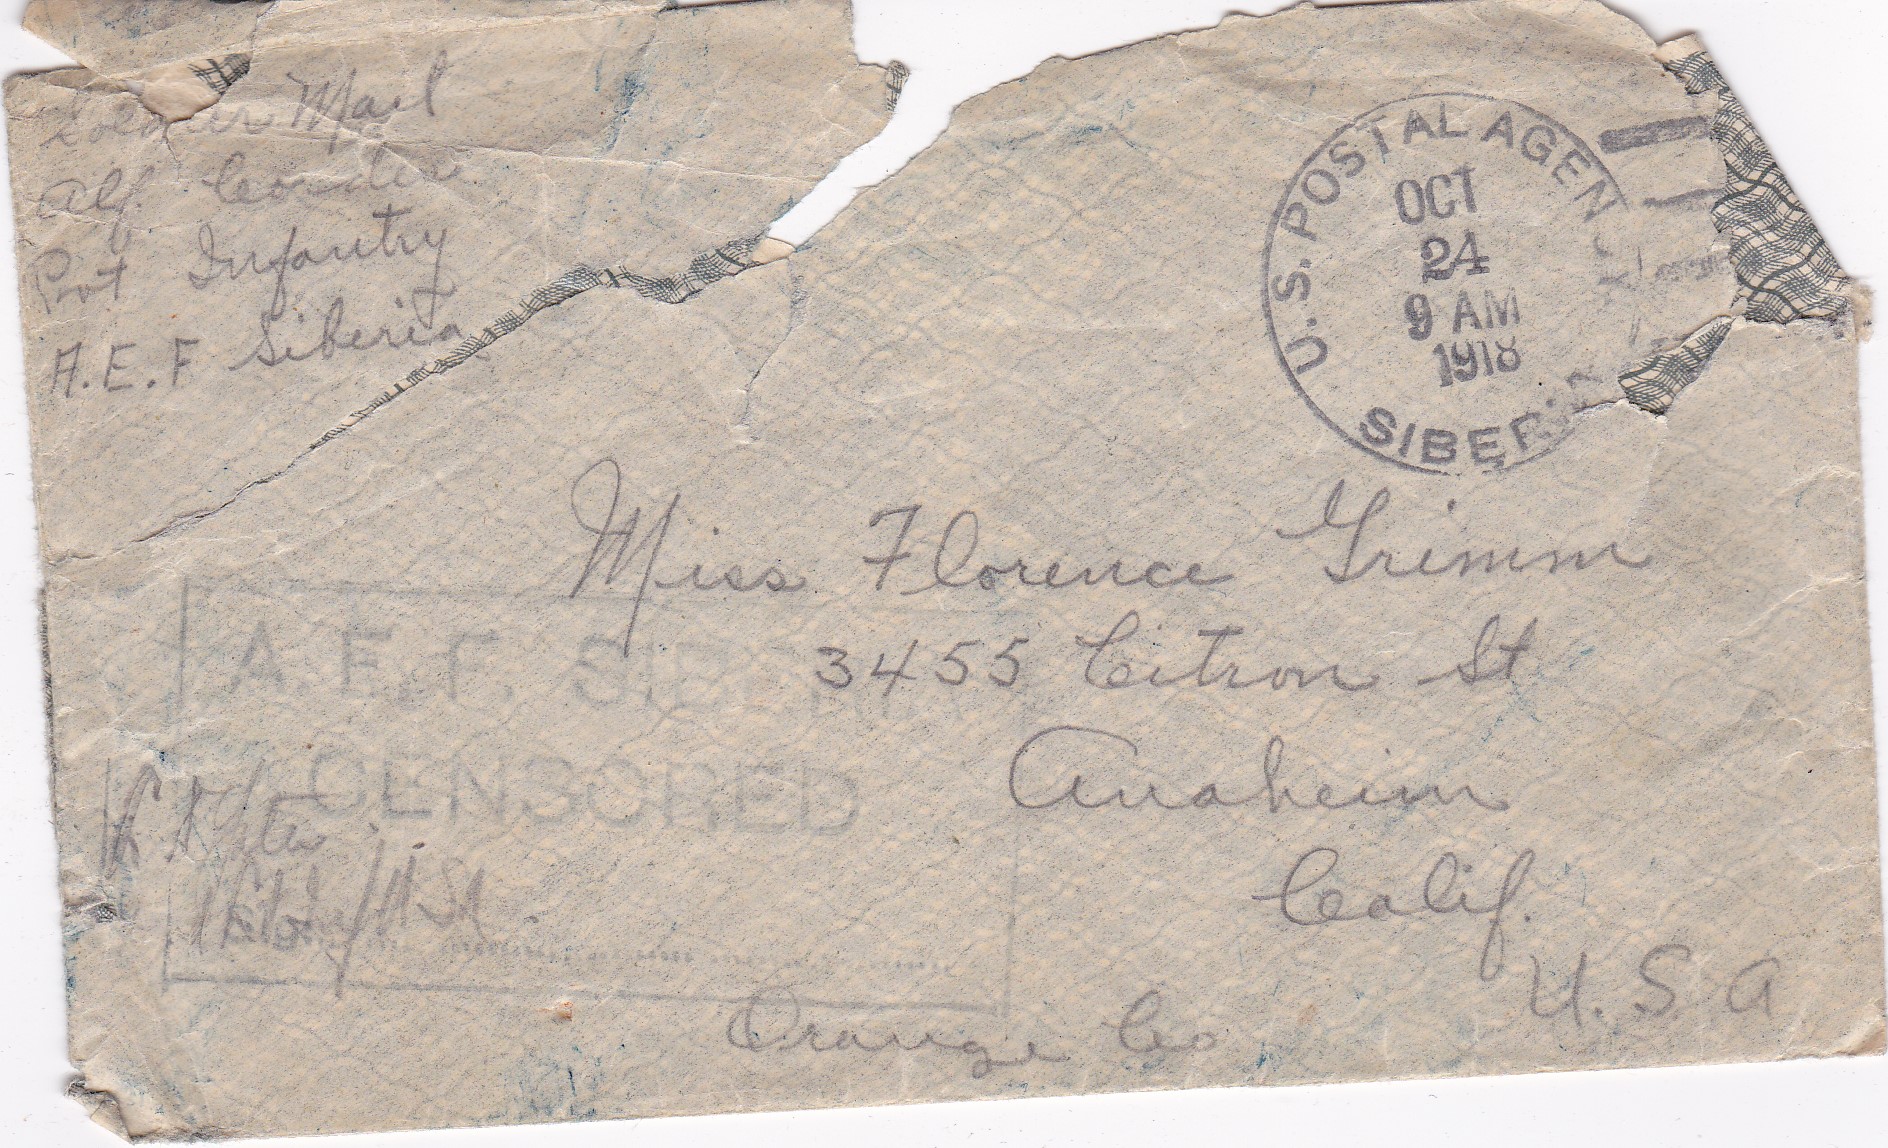 Soldier Mail
Alf.
Pvt Infantry
A.E.F Siberia
U.S. POSTAL AGEN
OCT
24
9 AM
1918
SIBER
Miss Florence Grimm
3455 Citron St
Anaheim
Calif.
U.S.A
Orange Co
A.E.F. SIBERIA
CENSORED